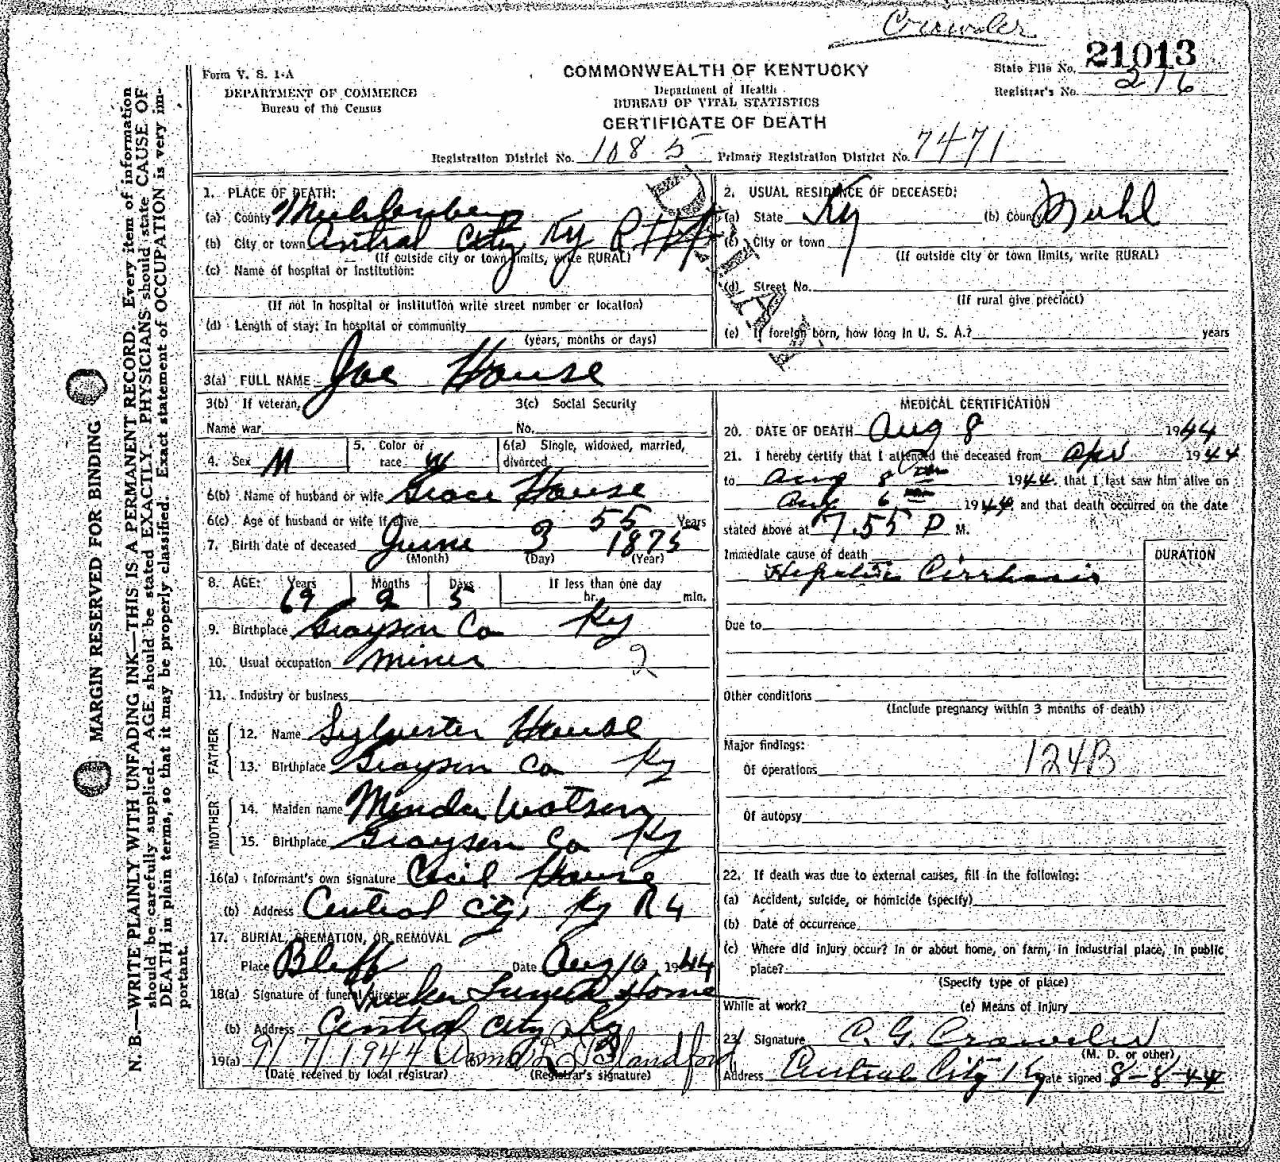 Crowder
21013
Form V. S. 1-A
COMMONWEALTH OF KENTUCKY
State File No.
DEPARTMENT OF COMMERCE
Department of Health
Registrar's No. 216
Bureau of the Census
BUREAU OF VITAL STATISTICS
CERTIFICATE OF DEATH
Registration District No. 1085 Primary Registration District No. 7471
1. PLACE OF DEATH:
(a) County Muhlenberg
(b) City or town Central City Ky
(If outside city or town limits, write RURAL)
(c) Name of hospital or institution:
(If not in hospital or institution write street number or location)
(d) Length of stay: In hospital or community
(years, months or days)
2. USUAL RESIDENCE OF DECEASED:
(a) State Ky (b) County Muhl
(c) City or town
(If outside city or town limits, write RURAL)
(d) Street No.
(If rural give precinct)
(e) If foreign born, how long in U. S. A.? years
3(a) FULL NAME Joe House
3(b) If veteran, 3(c) Social Security
Name war No.
4. Sex M 5. Color or race W 6(a) Single, widowed, married, divorced
6(b) Name of husband or wife Grace House
6(c) Age of husband or wife if alive 55 Years
7. Birth date of deceased June 3 1875
(Month) (Day) (Year)
8. AGE: Years Months Days If less than one day
69 2 5 hr. min.
9. Birthplace Grayson Co Ky
10. Usual occupation Miner 2
11. Industry or business
FATHER
12. Name Sylvester House
13. Birthplace Grayson Co Ky
MOTHER
14. Maiden name Minda Watson
15. Birthplace Grayson Co Ky
16(a) Informant's own signature Cecil House
(b) Address Central City, Ky R4
17. BURIAL, CREMATION, OR REMOVAL
Place Bluff Date Aug 10 1944
18(a) Signature of funeral director Tucker Funeral Home
(b) Address Central City Ky
19(a) 9/7/1944 (b) Blandford
(Date received by local registrar) (Registrar's signature)
MEDICAL CERTIFICATION
20. DATE OF DEATH Aug 8 1944
21. I hereby certify that I attended the deceased from Apr 1944
to Aug 8 1944, that I last saw him alive on
Aug 6 1944, and that death occurred on the date
stated above at 7.55 P M.
Immediate cause of death DURATION
Hepatic Cirrhosis
Due to
Other conditions
(Include pregnancy within 3 months of death)
Major findings: 124B
Of operations
Of autopsy
22. If death was due to external causes, fill in the following:
(a) Accident, suicide, or homicide (specify)
(b) Date of occurrence
(c) Where did injury occur? In or about home, on farm, in industrial place, in public
place?
(Specify type of place)
While at work? (e) Means of Injury
23. Signature C. G. Crowder
(M. D. or other)
Address Central City Ky Date signed 8-8-44
MARGIN RESERVED FOR BINDING
N. B.—WRITE PLAINLY WITH UNFADING INK—THIS IS A PERMANENT RECORD. Every item of information
should be carefully supplied. AGE should be stated EXACTLY. PHYSICIANS should state CAUSE OF
DEATH in plain terms, so that it may be properly classified. Exact statement of OCCUPATION is very im-
portant.